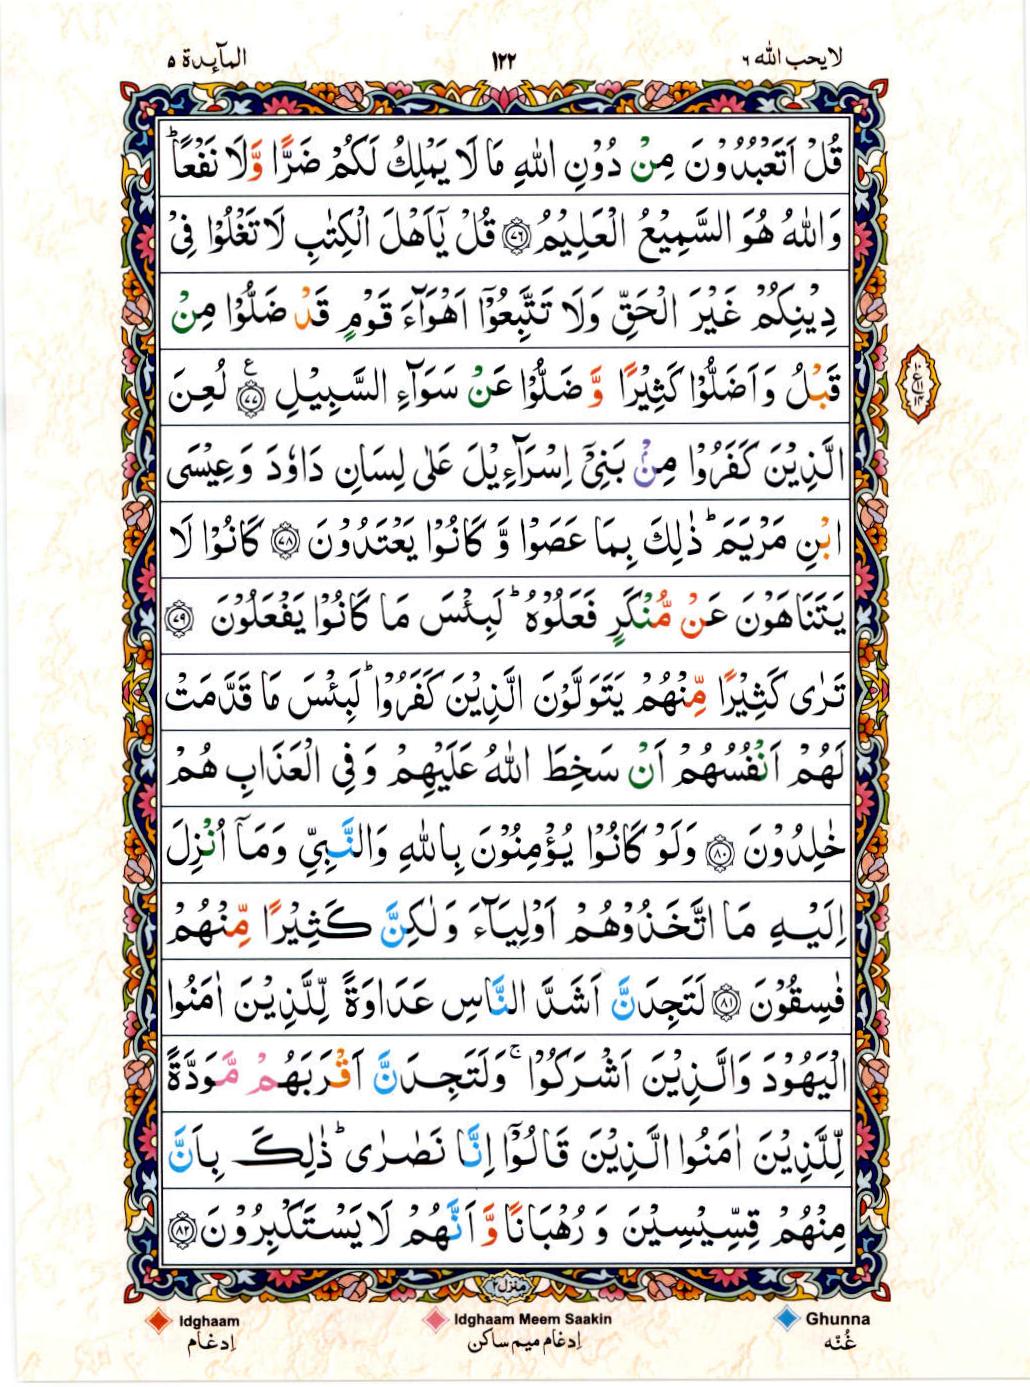 لا يحب الله ٦
١٢٢
المآىِٕدة ٥
قُلْ اَتَعْبُدُوْنَ مِنْ دُوْنِ اللّٰهِ مَا لَا يَمْلِكُ لَكُمْ ضَرًّا وَّلَا نَفْعًا ؕ
وَاللّٰهُ هُوَ السَّمِيْعُ الْعَلِيْمُ ﴿۷۶﴾ قُلْ يٰۤاَهْلَ الْكِتٰبِ لَا تَغْلُوْا فِيْ
دِيْنِكُمْ غَيْرَ الْحَقِّ وَلَا تَتَّبِعُوْۤا اَهْوَآءَ قَوْمٍ قَدْ ضَلُّوْا مِنْ
قَبْلُ وَاَضَلُّوْا كَثِيْرًا وَّ ضَلُّوْا عَنْ سَوَآءِ السَّبِيْلِ ﴿۷۷﴾ ع لُعِنَ
الَّذِيْنَ كَفَرُوْا مِنْۢ بَنِيْۤ اِسْرَآءِيْلَ عَلٰى لِسَانِ دَاوٗدَ وَعِيْسَى
ابْنِ مَرْيَمَ ؕ ذٰلِكَ بِمَا عَصَوْا وَّ كَانُوْا يَعْتَدُوْنَ ﴿۷۸﴾ كَانُوْا لَا
يَتَنَاهَوْنَ عَنْ مُّنْكَرٍ فَعَلُوْهُ ؕ لَبِئْسَ مَا كَانُوْا يَفْعَلُوْنَ ﴿۷۹﴾
تَرٰى كَثِيْرًا مِّنْهُمْ يَتَوَلَّوْنَ الَّذِيْنَ كَفَرُوْا ؕ لَبِئْسَ مَا قَدَّمَتْ
لَهُمْ اَنْفُسُهُمْ اَنْ سَخِطَ اللّٰهُ عَلَيْهِمْ وَفِي الْعَذَابِ هُمْ
خٰلِدُوْنَ ﴿۸۰﴾ وَلَوْ كَانُوْا يُؤْمِنُوْنَ بِاللّٰهِ وَالنَّبِيِّ وَمَاۤ اُنْزِلَ
اِلَيْهِ مَا اتَّخَذُوْهُمْ اَوْلِيَآءَ وَلٰكِنَّ كَثِيْرًا مِّنْهُمْ
فٰسِقُوْنَ ﴿۸۱﴾ لَتَجِدَنَّ اَشَدَّ النَّاسِ عَدَاوَةً لِّلَّذِيْنَ اٰمَنُوا
الْيَهُوْدَ وَالَّذِيْنَ اَشْرَكُوْا ۚ وَلَتَجِدَنَّ اَقْرَبَهُمْ مَّوَدَّةً
لِّلَّذِيْنَ اٰمَنُوا الَّذِيْنَ قَالُوْۤا اِنَّا نَصٰرٰى ؕ ذٰلِكَ بِاَنَّ
مِنْهُمْ قِسِّيْسِيْنَ وَ رُهْبَانًا وَّ اَنَّهُمْ لَا يَسْتَكْبِرُوْنَ ﴿۸۲﴾
منزل ٢
Idghaam
Idghaam Meem Saakin
Ghunna
اِدغام
اِدغام میم ساکن
غُنّه